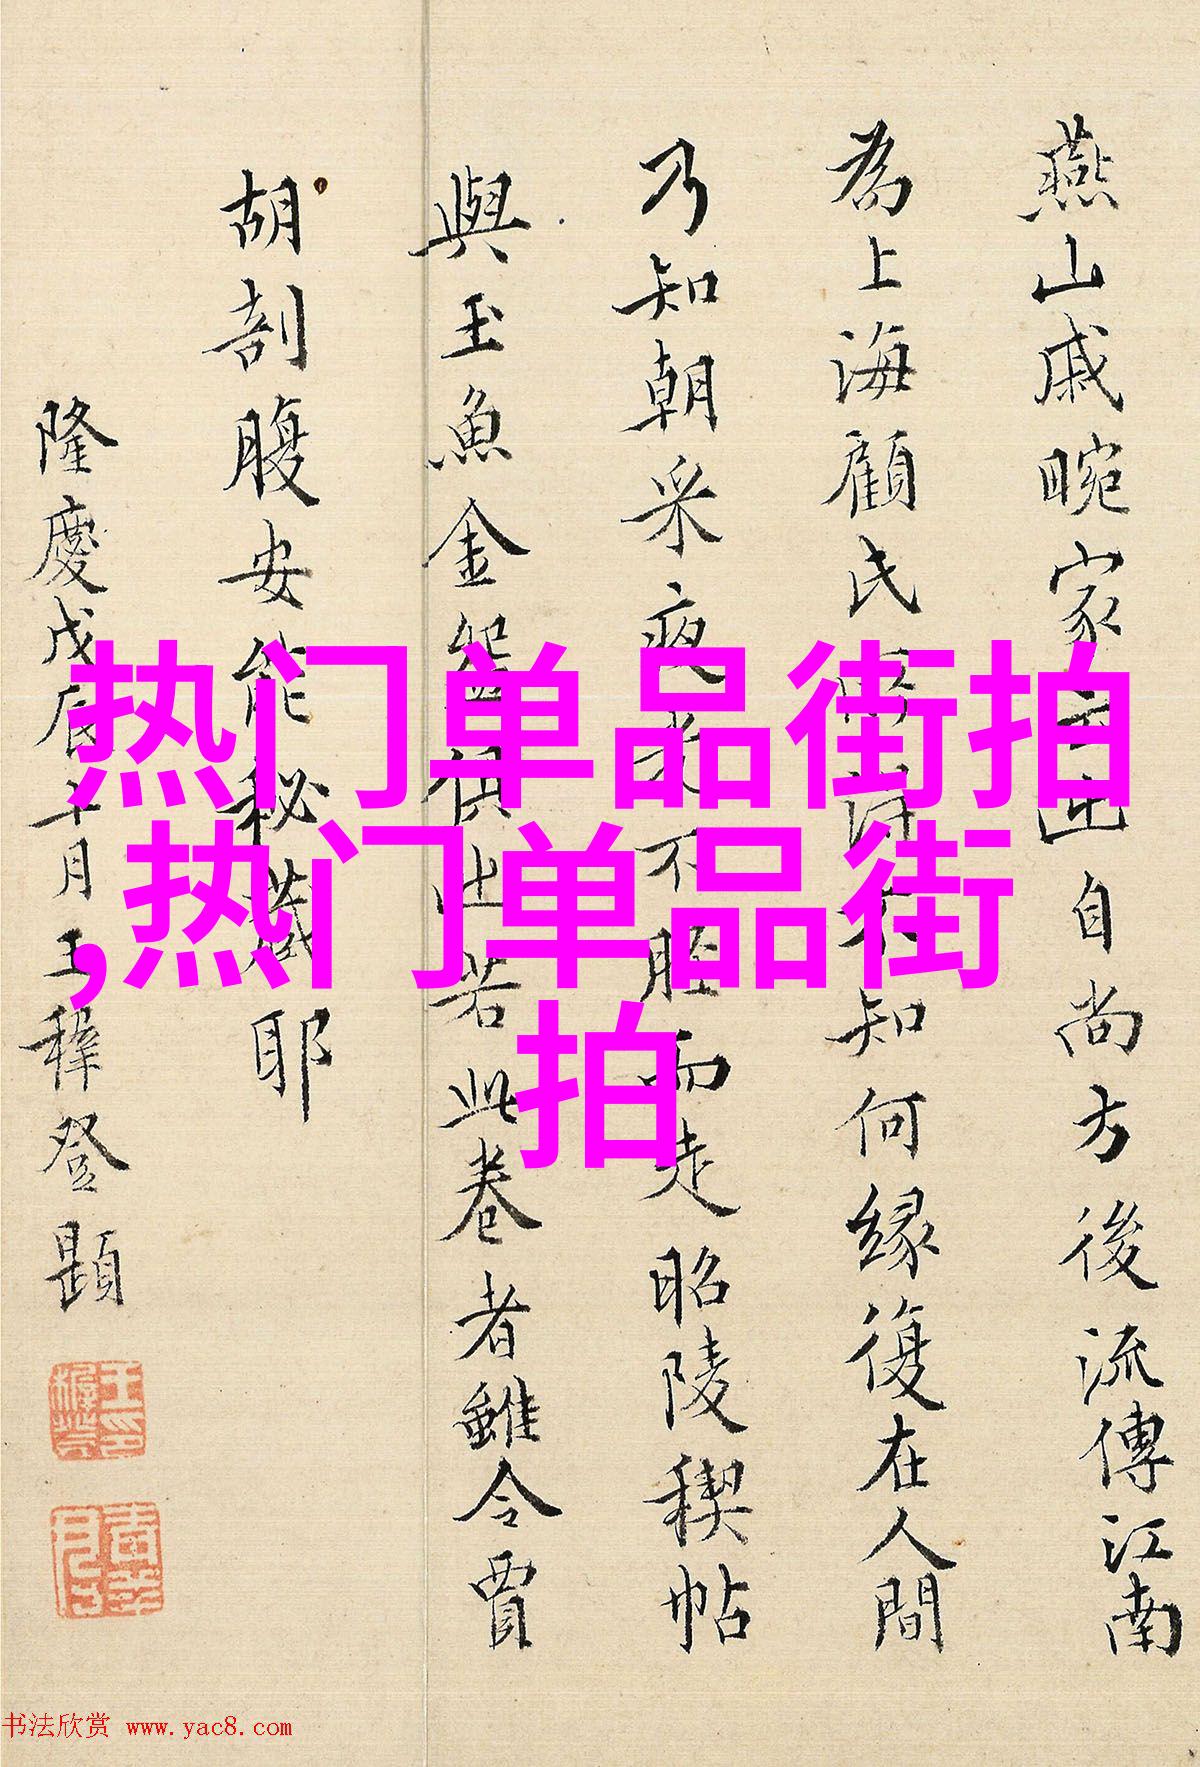 燕山戚畹家 出自尚方後流傳江南
為上海顧氏 知何緣復在人間
乃知朝采夜光不脛而走昭陵稧帖
與玉魚金盌俱出若此卷者雖令賈
胡剖腹安能秘藏耶
隆慶戊辰十月王穉登題
热门单品街拍
,热门单品街
拍
书法欣赏 www.yac8.com